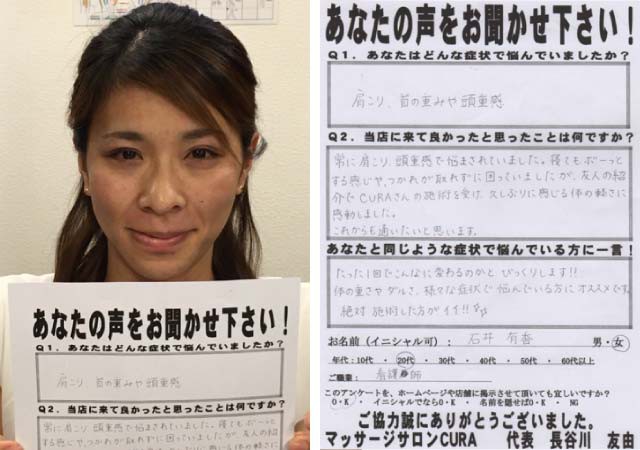 あなたの声をお聞かせ下さい！
Q1．あなたはどんな症状で悩んでいましたか？
肩こり、首の重みや頭重感
Q2．当店に来て良かったと思ったことは何ですか？
常に肩こり、頭重感で悩まされていました。寝てもボーっと
する感じや、つかれが取れずに困っていましたが、友人の紹
あなたの声をお聞かせ下さい！
Q1．あなたはどんな症状で悩んでいましたか？
肩こり、首の重みや頭重感
Q2．当店に来て良かったと思ったことは何ですか？
常に肩こり、頭重感で悩まされていました。寝てもボーっと
する感じや、つかれが取れずに困っていましたが、友人の紹
介でCURAさんの施術を受け、久しぶりに感じる体の軽さに
感動しました。
これからも通いたいと思います。
あなたと同じような症状で悩んでいる方に一言！
たった1回でこんなに変わるのかと びっくりします!!
体の重さや ダルさ、様々な症状で悩んでいる方にオススメです。
絶対 施術した方がイイ!!
お名前（イニシャル可）：石井 有香 男・女
年代：10代 ・ 20代 ・ 30代 ・ 40代 ・ 50代 ・ 60代以上
ご職業：看護師
このアンケートを、ホームページや店舗に掲示させて頂いても宜しいですか？
O・K ・ イニシャルでならO・K ・ 名前を隠せばO・K ・ NG
ご協力誠にありがとうございました。
マッサージサロンCURA 代表 長谷川 友由